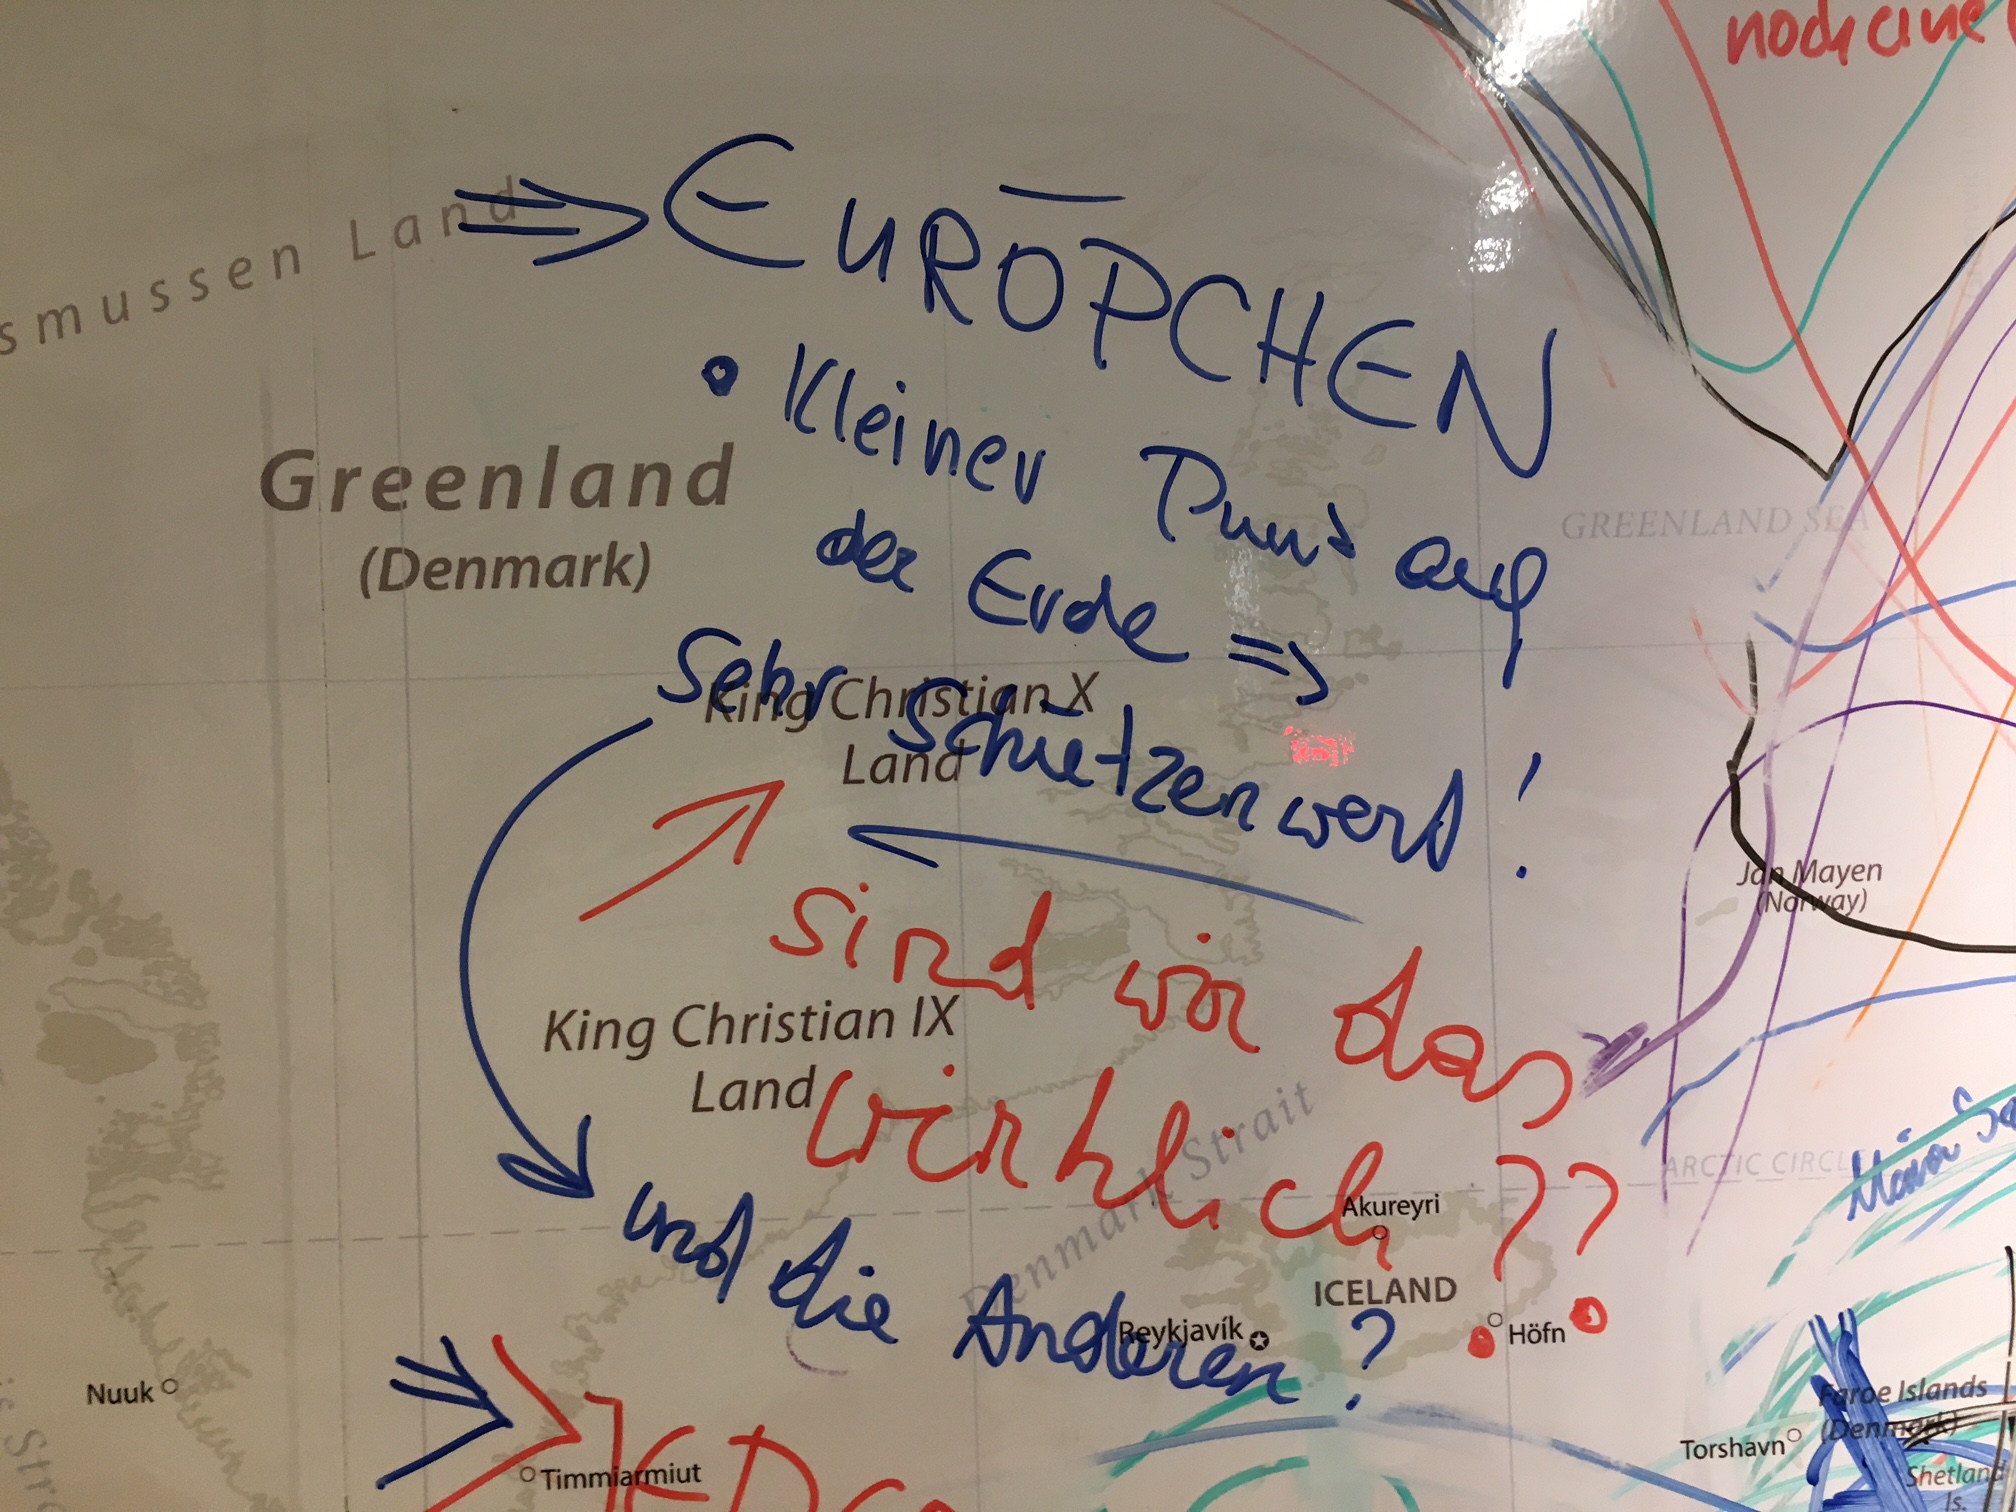 noch eine
⇒ EUROPCHEN
• Kleiner Punkt auf
der Erde ⇒
Sehr Schützenwert!
sind wir das
wirklich ??
und die Anderen?
smussen Land
Greenland
(Denmark)
GREENLAND SEA
King Christian X
Land
Jan Mayen
(Norway)
King Christian IX
Land
Denmark Strait
ARCTIC CIRCLE
Akureyri
ICELAND
Reykjavík
Höfn
Nuuk
Timmiarmiut
Faroe Islands
(Denmark)
Torshavn
Shetland
Is.